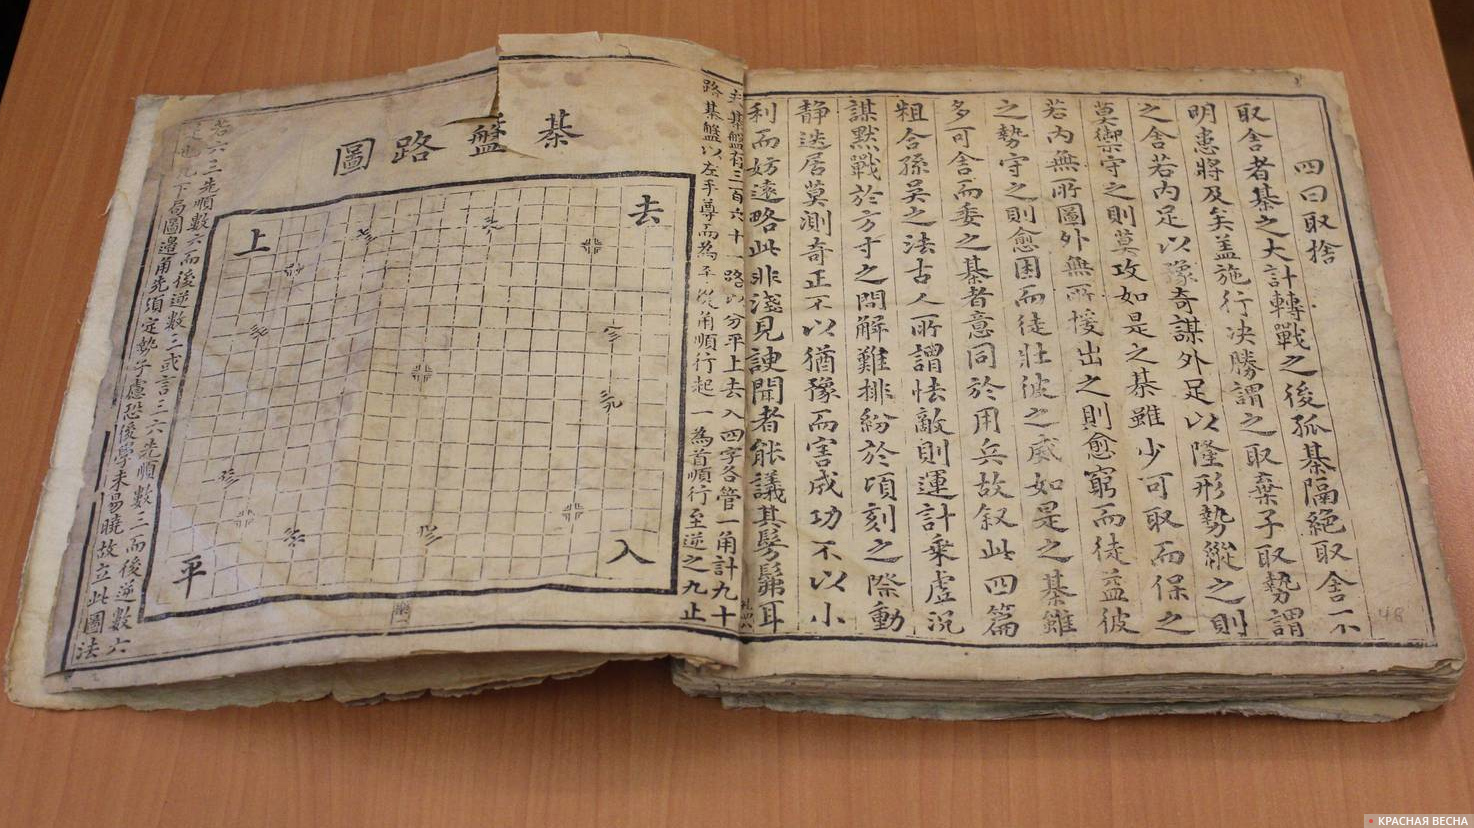 四曰取捨
取舍者棊之大計轉戰之後孤棊隔絶取舍不
明患將及矣盖施行決勝謂之取棄子取勢謂
之舍若内足以豫奇謀外足以隆形勢縱之則
莫禦守之則莫攻如是之棊雖少可取而保之
若内無所圖外無所援出之則愈窮而徒益彼
之勢守之則愈困而徒壯彼之威如是之棊雖
多可舍而委之棊者意同於用兵故叙此四篇
粗合孫吳之法古人所謂怯敵則運計乗虚沉
謀黙戰於方寸之間解難排紛於頃刻之際動
静迭居莫測奇正不以猶豫而害成功不以小
利而妨遠略此非淺見諛聞者能議其髣髴耳
夫棊盤有三百六十一路以分平上去入四字各管一角計九十
路棊盤以左手尊而為平從角順行起一為首順行至逆之九止
棊盤路圖
去
上
入
平
若六三先順數六而後逆數三或言三六先順數三而後逆數六
下局圖邊角先須定勢子慮恐後學未易曉故立此圖法
48
КРАСНАЯ ВЕСНА